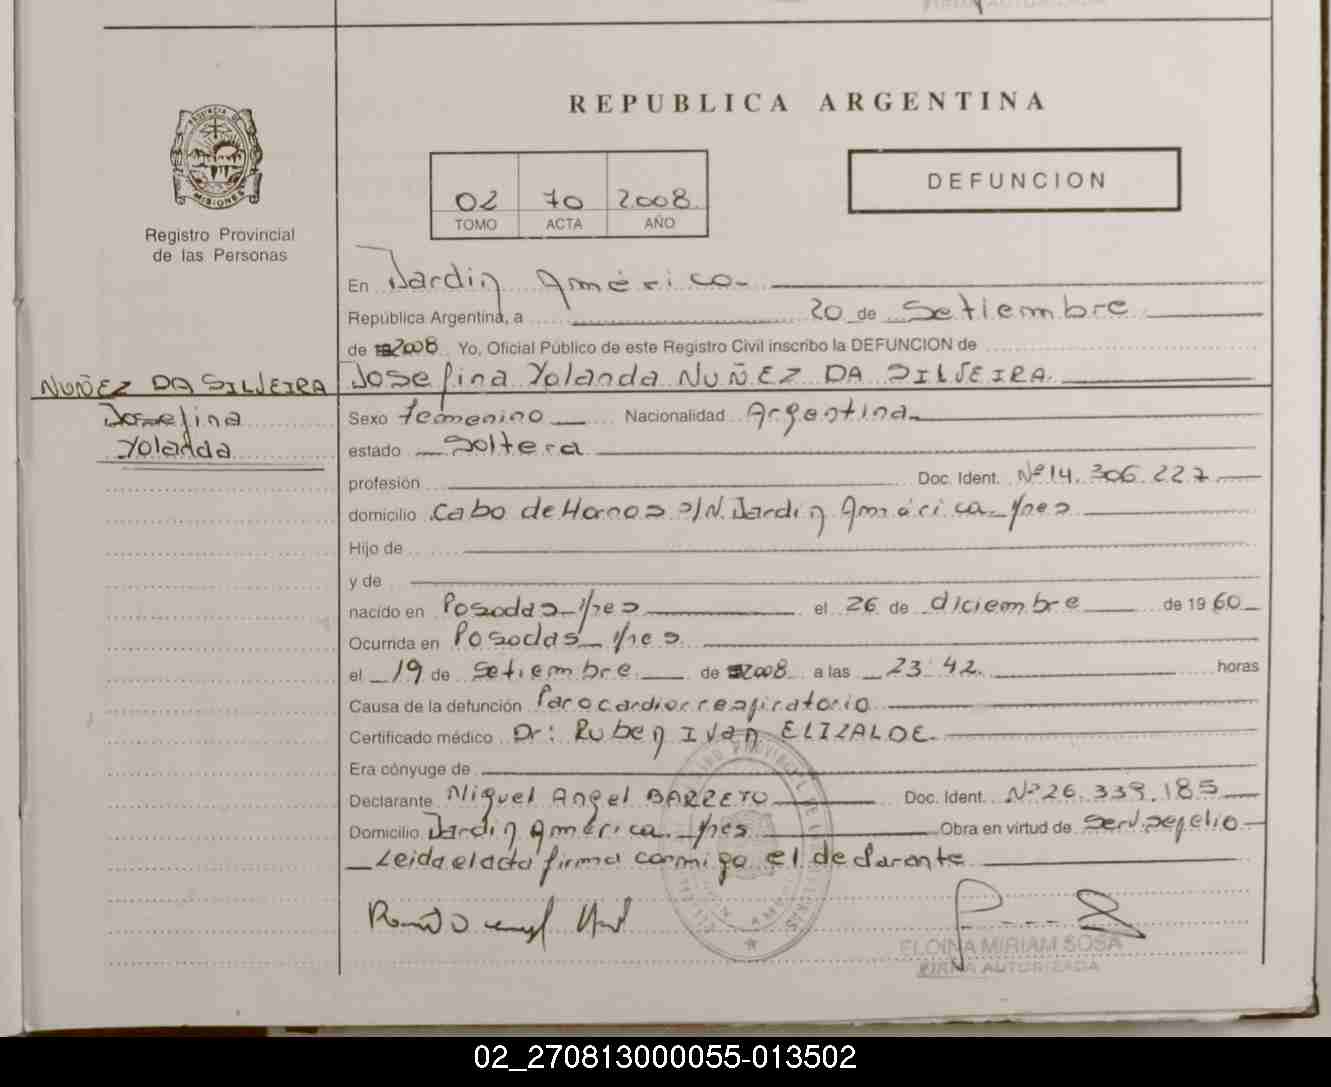 REPUBLICA ARGENTINA
PROVINCIA DE
MISIONES
Registro Provincial
de las Personas
02 70 2008
TOMO ACTA AÑO
DEFUNCION
En Jardin América
República Argentina, a 20 de Setiembre
de 2008 Yo, Oficial Público de este Registro Civil inscribo la DEFUNCION de
NUÑEZ DA SILVEIRA Josefina Yolanda NUÑEZ DA SILVEIRA
Josefina
Yolanda
Sexo Femenino Nacionalidad Argentina
estado Soltera
profesión Doc. Ident. Nº 14.306.227
domicilio Cabo de Hornos s/N. Jardin América_Mnes
Hijo de
y de
nacido en Posadas_Mnes el 26 de diciembre de 1960
Ocurrida en Posadas_Mnes
el 19 de Setiembre de 2008 a las 23:42 horas
Causa de la defunción Parocardiorrespiratorio
Certificado médico Dr: Ruben Ivan ELIZALDE
Era cónyuge de
Declarante Miguel Angel BARRETO Doc. Ident. Nº 26.339.185
Domicilio Jardin América_Mnes Obra en virtud de Serv.sepelio
Leida el acta firma conmigo el declarante
ELOINA MIRIAM SOSA
FIRMA AUTORIZADA
02_270813000055-013502